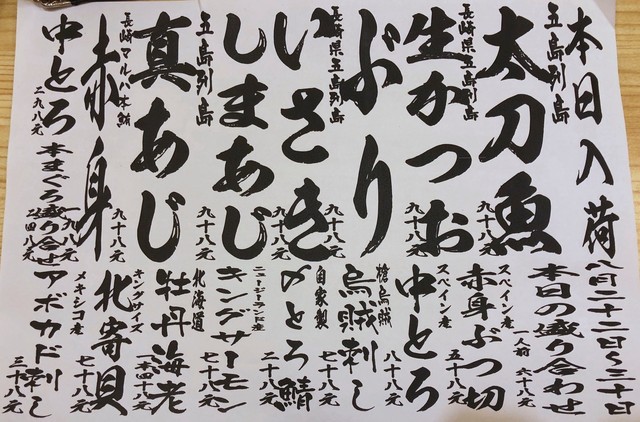 本日入荷
八月二十二日〜三十日
五島列島
太刀魚
九十八元
長崎県五島列島
生かつお
九十八元
ぶり
九十八元
長崎県五島列島
いさき
九十八元
五島列島
しまあじ
九十八元
真あじ
九十八元
長崎マルハ本鮪
赤身
一九八元
中とろ
二九八元
本まぐろ盛り合せ
二四八元
本日の盛り合わせ
一人前 六十八元
スペイン産
赤身ぶつ切
五十八元
スペイン産
中とろ
八十八元
槍烏賊
烏賊刺し
七十八元
自家製
〆とろ鯖
二十八元
ニュージーランド産
キングサーモン
七十八元
北海道
牡丹海老
キングサイズ
北寄貝
七十八元
メキシコ産
アボカド刺し
三十八元